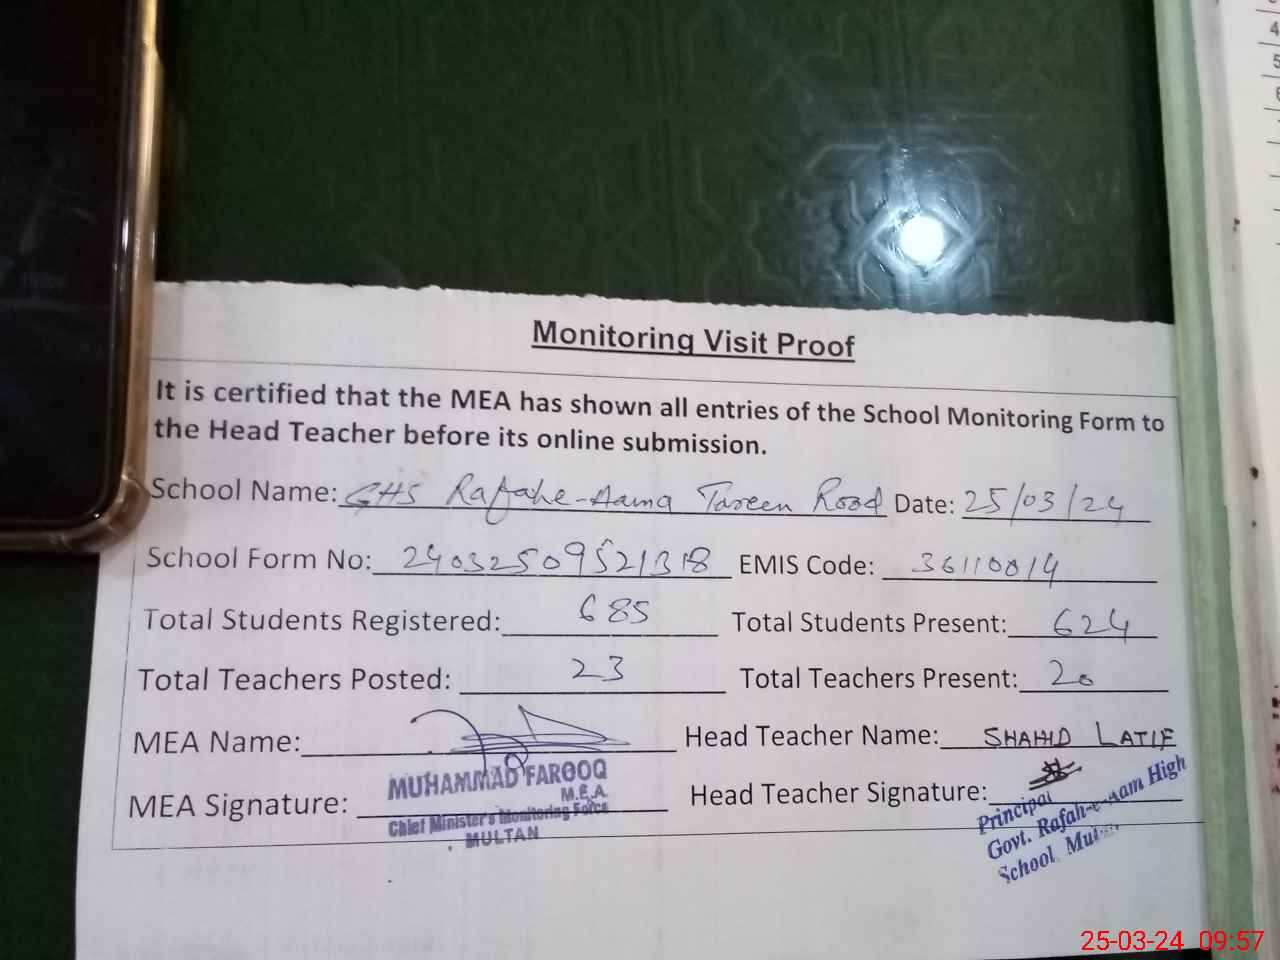 Monitoring Visit Proof
It is certified that the MEA has shown all entries of the School Monitoring Form to
the Head Teacher before its online submission.
School Name: GHS Rafahe-Aama Tareen Road Date: 25/03/24
School Form No: 24032509521318 EMIS Code: 36110014
Total Students Registered: 685 Total Students Present: 624
Total Teachers Posted: 23 Total Teachers Present: 20
MEA Name: Head Teacher Name: SHAHID LATIF
MUHAMMAD FAROOQ
M.E.A.
MEA Signature: Head Teacher Signature:
Chief Minister's Monitoring Force
MULTAN
Principal
Govt. Rafah-e-Aam High
School,
25-03-24 09:57